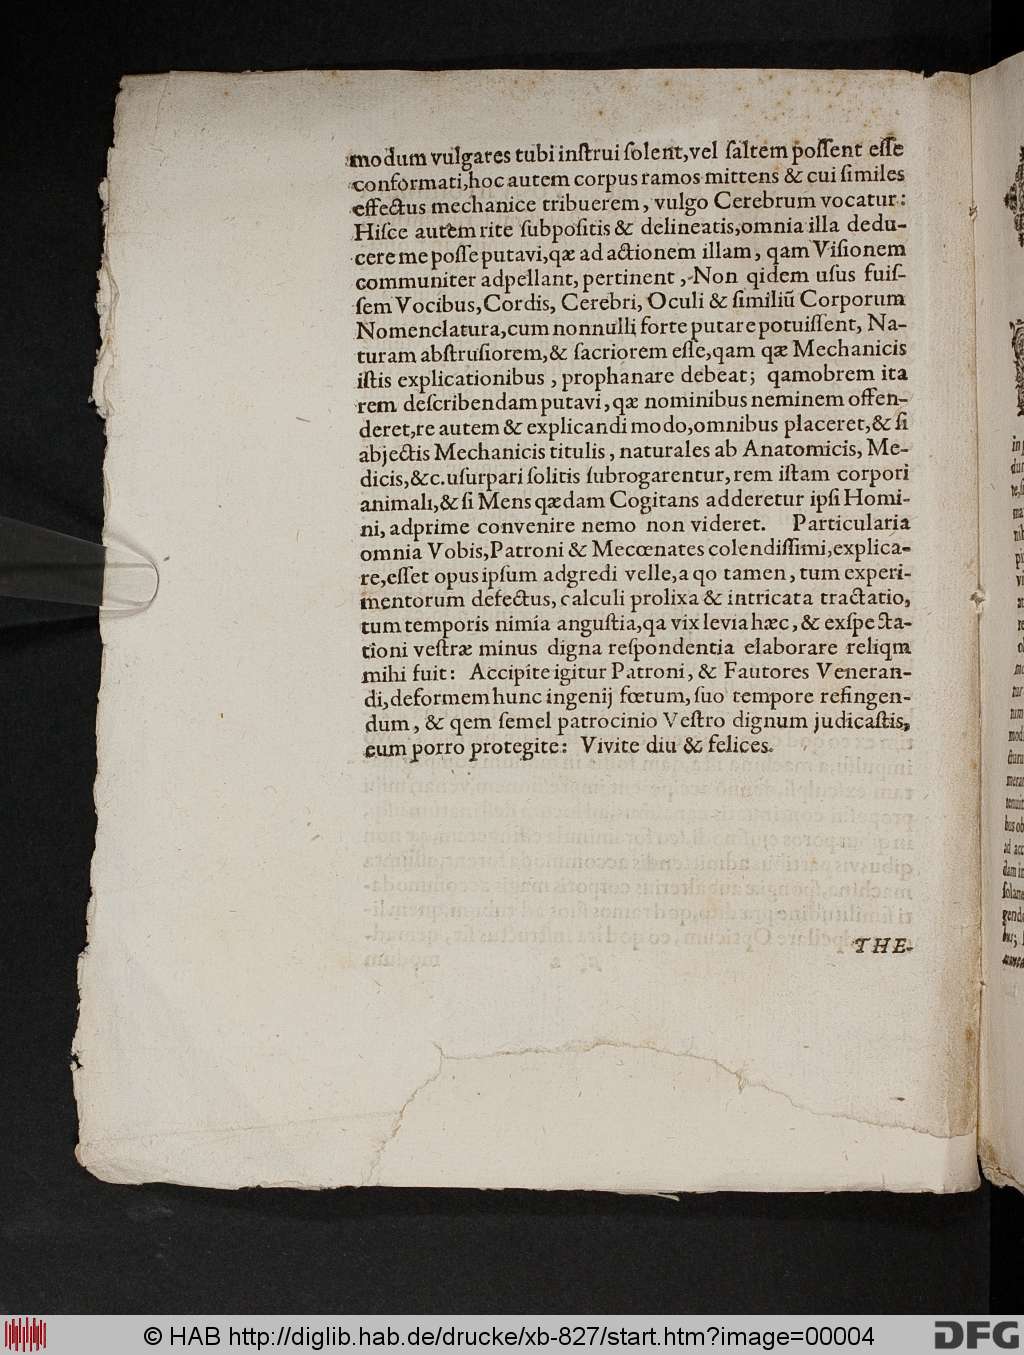 modum vulgares tubi inſtrui ſolent,vel ſaltem poſſent eſſe
conformati,hoc autem corpus ramos mittens & cui ſimiles
effectus mechanice tribuerem, vulgo Cerebrum vocatur:
Hiſce autem rite ſubpoſitis & delineatis,omnia illa dedu-
cere me poſſe putavi,qæ ad actionem illam, qam Viſionem
communiter adpellant, pertinent, Non qidem uſus fuiſ-
ſem Vocibus,Cordis, Cerebri, Oculi & ſimiliū Corporum
Nomenclatura,cum nonnulli forte putare potuiſſent, Na-
turam abſtruſiorem,& ſacriorem eſſe,qam qæ Mechanicis
iſtis explicationibus, prophanare debeat; qamobrem ita
rem deſcribendam putavi, qæ nominibus neminem offen-
deret,re autem & explicandi modo,omnibus placeret,& ſi
abjectis Mechanicis titulis, naturales ab Anatomicis, Me-
dicis,&c.uſurpari ſolitis ſubrogarentur, rem iſtam corpori
animali,& ſi Mens qædam Cogitans adderetur ipſi Homi-
ni, adprime convenire nemo non videret. Particularia
omnia Vobis,Patroni & Mecœnates colendiſſimi,explica-
re,eſſet opus ipſum adgredi velle,a qo tamen, tum experi-
mentorum defectus, calculi prolixa & intricata tractatio,
tum temporis nimia anguſtia,qa vix levia hæc, & exſpecta-
tioni veſtræ minus digna reſpondentia elaborare reliqm
mihi fuit: Accipite igitur Patroni, & Fautores Veneran-
di,deformem hunc ingenij fœtum, ſuo tempore refingen-
dum, & qem ſemel patrocinio Veſtro dignum judicaſtis,
eum porro protegite: Vivite diu & felices.
THE-
© HAB http://diglib.hab.de/drucke/xb-827/start.htm?image=00004
DFG